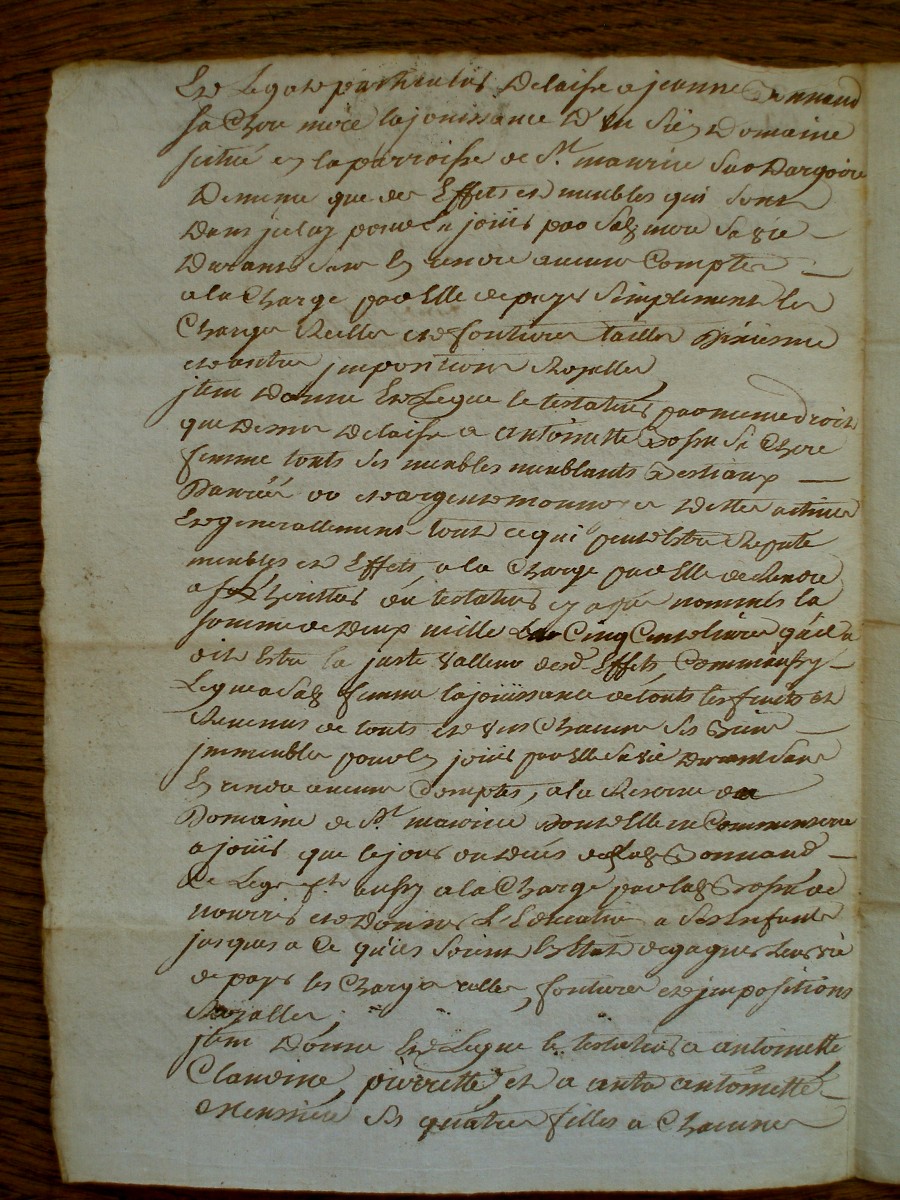 Et Legate particulier Delaisse a jeanne Bonnand
sa Chere mere la jouissance D'un sien Domaine
scitué en la parroisse de St. maurice sur Dargoire
Dememe que des Effets et meubles qui sont
Dans jceluy pour en jouir par sad. mere sa vie
Durant sans en rendre aucun Compte
a la Charge par Elle de payer simplement les
Charges Reelles et foncieres tailles Dixieme
et autres jmpositions Royalles
jtem Donne Et Legue le testateur par meme droit
que Dessus Delaisse a antoinette sa Chere
femme touts ses meubles meublants Bestiaux
Danrées or et argent monnoyes Dettes actives
Et generallement tout ce qui peut Estre Reputé
meubles et Effets a la Charge par Elle de Rendre
a son heritier du testateur cy apres nommés la
somme de Deux mille Cinq Cent livres qu'il a
dit Estre la juste valleur desd. Effets, Comm'aussy
Legue a sad. femme la jouissance de touts les fruits et
Revenus de touts et uns Chacuns ses Biens
jmmeubles pour en jouir par Elle sa vie Durant sans
En rendre aucuns Comptes, a la Reserve du
Domaine de St. maurice Dont Elle ne Commencera
a jouir que le jour du deces de lad. Bonnand
Ce Legs fait aussy a la Charge par lad. de
nourrir et Donner L'Education a ses Enfants
jusques a Ce qu'ils soient En Etat de gagner leur vie
de payer les Charges reelles, foncieres et jmpositions
Royalles.
jtem Donne Et Legue le testateur a antoinette
Claudine, pierrette et a antoinette
ses quatre filles a Chacune